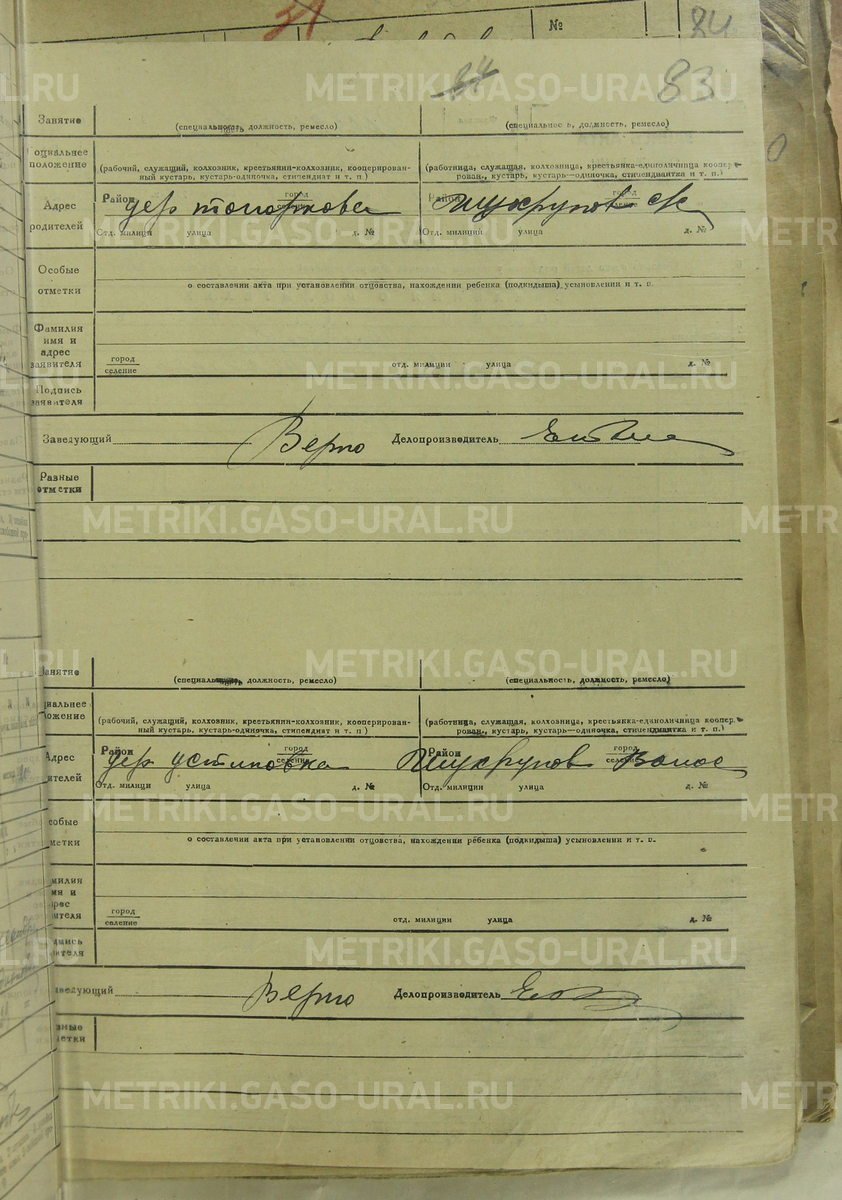 31
№
84
84
83
Занятие
(специальность, должность, ремесло)
(специальность, должность, ремесло)
Социальнее положение
(рабочий, служащий, колхозник, крестьянин-колхозник, кооперирован-
ный кустарь, кустарь-одиночка, стипендиат и т. п.)
(работница, служащая, колхозница, крестьянка-единоличница коопер
рован., кустарь, кустарь—одиночка, стипендиантка и т. п.)
Адрес
родителей
Район город селение
дер топоркова
Район город селение
Шухрупов с/с
Отд. милици улица д. №
Отд. милиций улица д. №
Особые
отметки
о составлении акта при установлении отцовства, нахождении ребенка (подкидыша) усыновлении и т. п.
Фамилия
имя и
адрес
заявителя
город
селение
отд. милиции улица д. №
Подпись
заявителя
Заведующий Верно Делопроизводитель
Разные
отметки
Занятие
(специальность, должность, ремесло)
(специальность, должность, ремесло)
циальнее
ложение
(рабочий, служащий, колхозник, крестьянин-колхозник, кооперирован-
ный кустарь, кустарь-одиночка, стипендиат и т. п.)
(работница, служащая, колхозница, крестьянка-единоличница коопер
рован., кустарь, кустарь—одиночка, стипендиантка и т. п.)
Адрес
ителей
Район город селение
дер устиновка
Район город селение
Шухрупов Волос
Отд. милици улица д. №
Отд. милиции улица д. №
собые
метки
о составлении акта при установлении отцовства, нахождении ребенка (подкидыша) усыновлении и т. п.
амилия
мя и
дрес
ителя
город
селение
отд. милиции улица д. №
одпись
вителя
аведующий Верно Делопроизводитель
зные
етки
METRIKI.GASO-URAL.RU